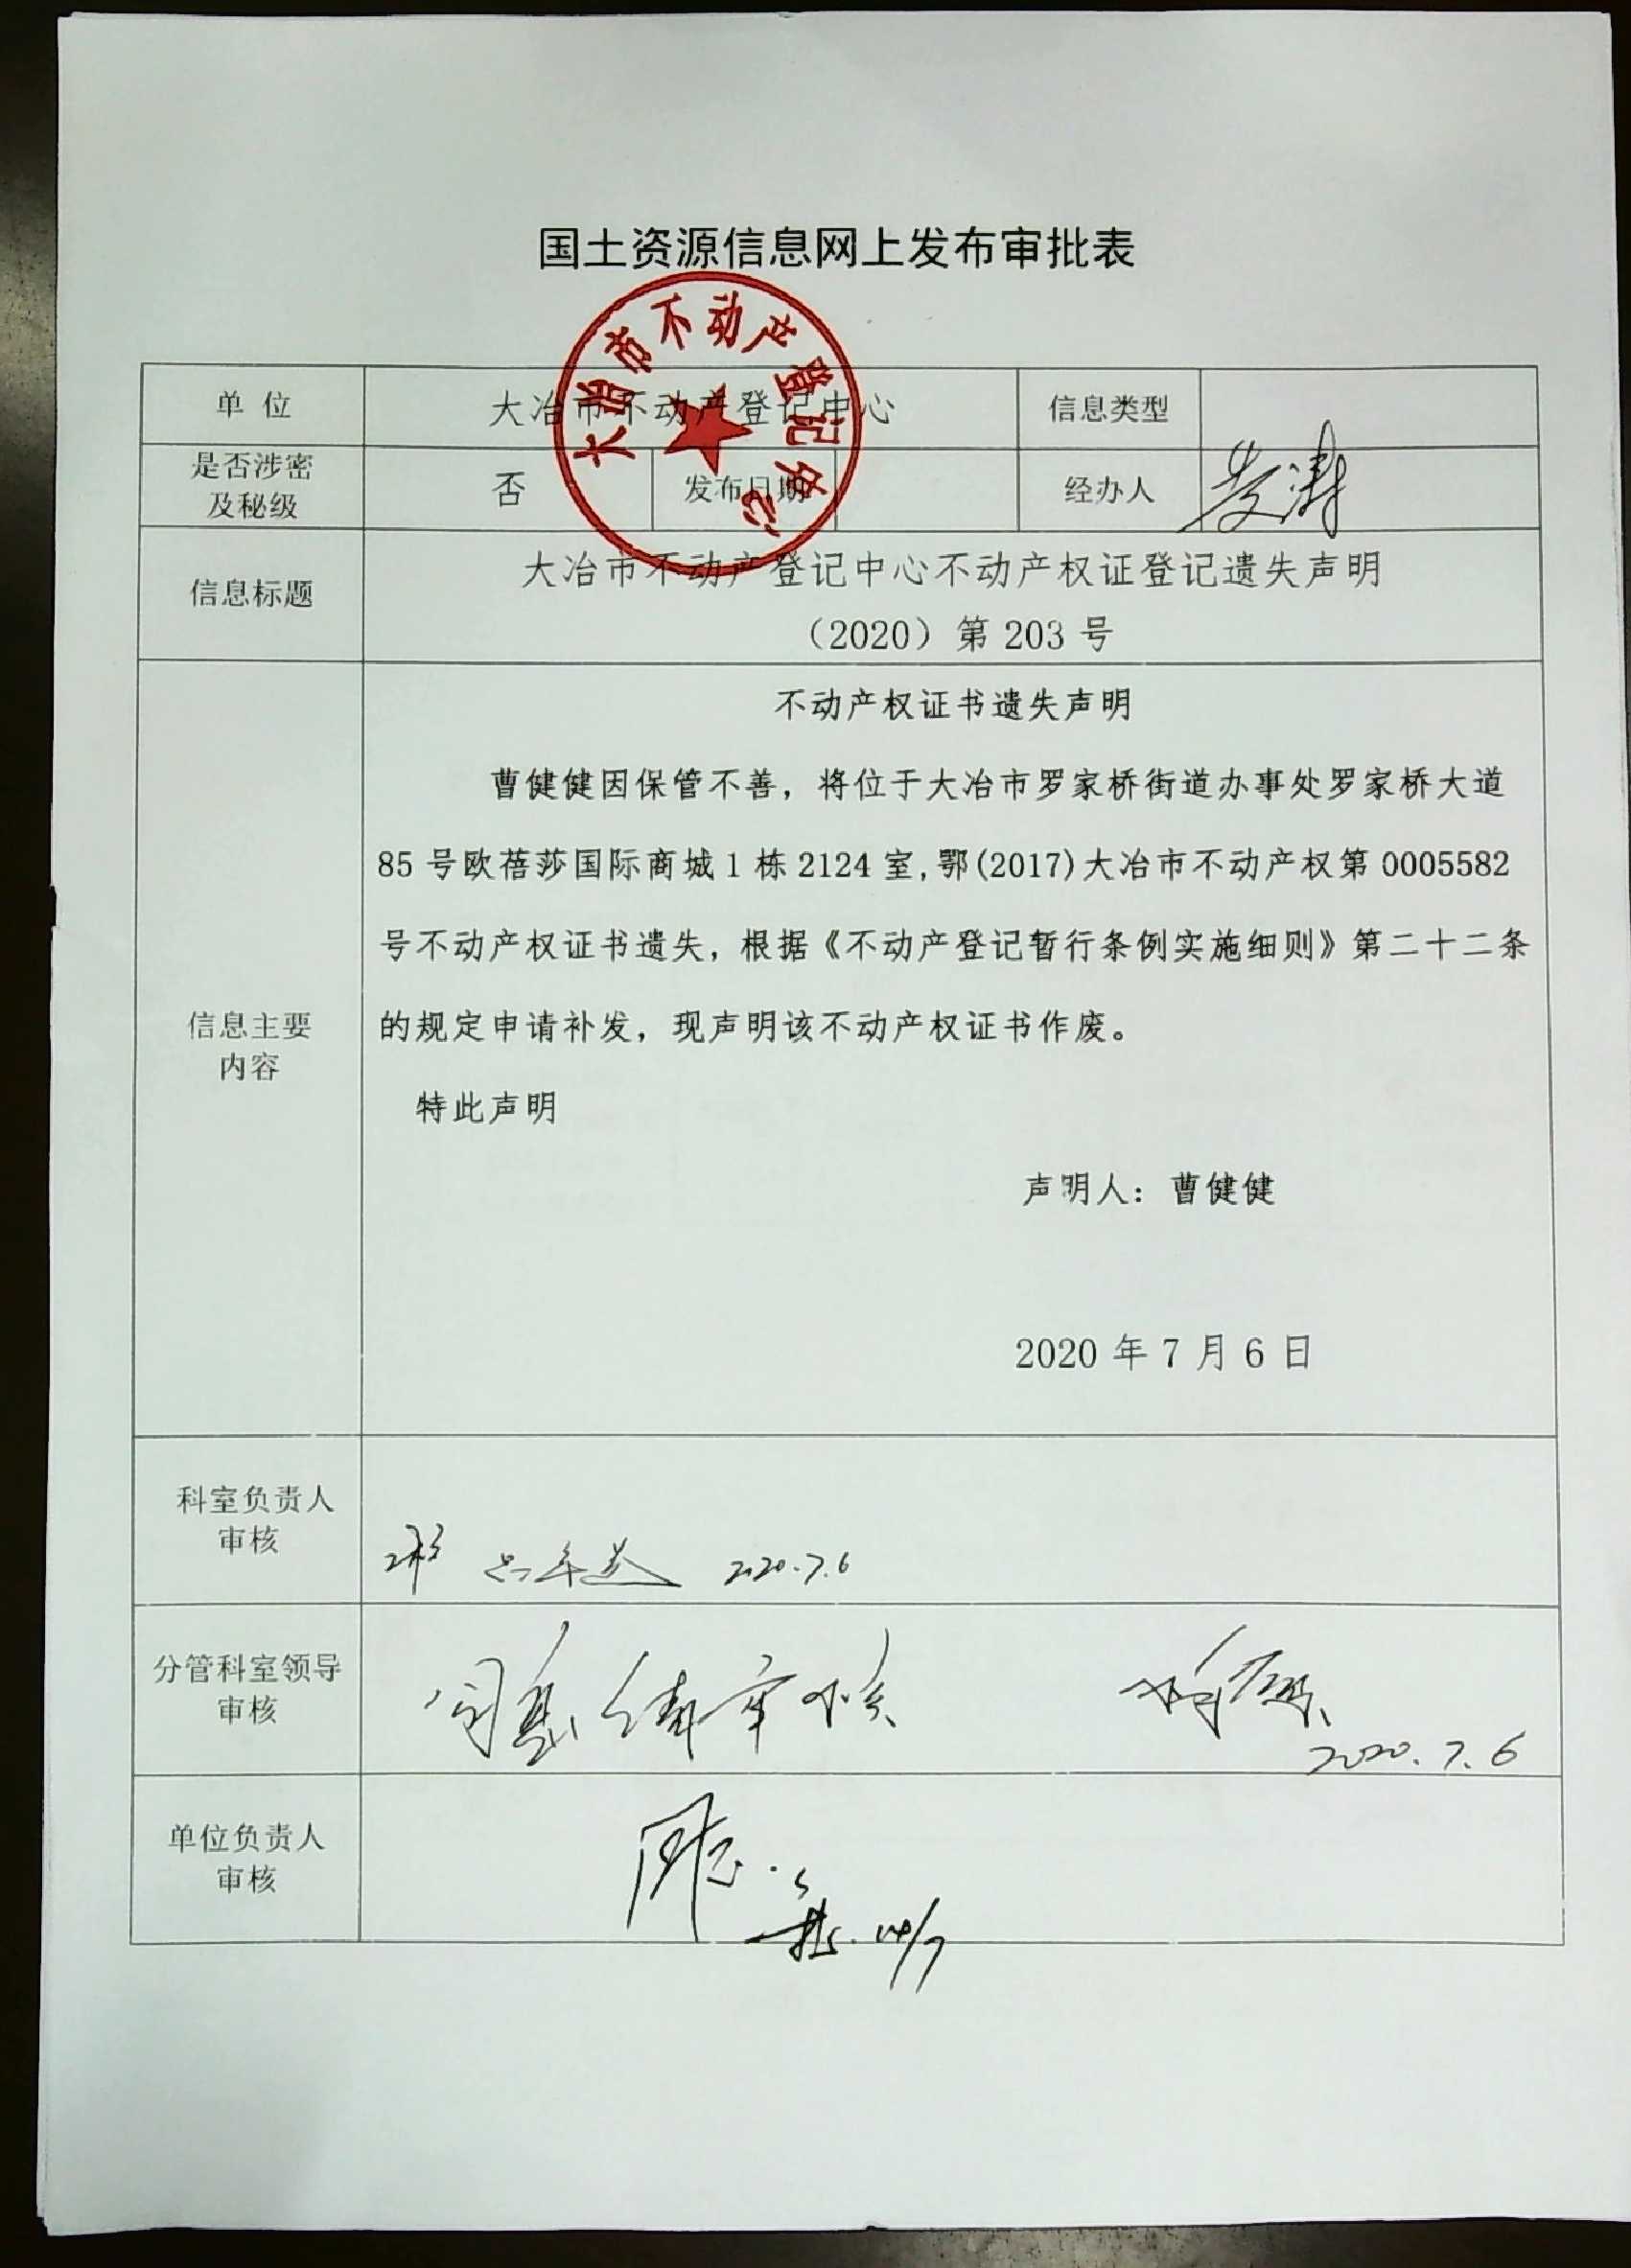 国土资源信息网上发布审批表
大冶市不动产登记中心
单 位
大冶市不动产登记中心
信息类型
是否涉密
及秘级
否
发布日期
经办人
信息标题
大冶市不动产登记中心不动产权证登记遗失声明
（2020）第 203 号
不动产权证书遗失声明
曹健健因保管不善，将位于大冶市罗家桥街道办事处罗家桥大道
85 号欧蓓莎国际商城 1 栋 2124 室,鄂(2017)大冶市不动产权第 0005582
号不动产权证书遗失，根据《不动产登记暂行条例实施细则》第二十二条
的规定申请补发，现声明该不动产权证书作废。
特此声明
声明人：曹健健
2020 年 7 月 6 日
信息主要
内容
科室负责人
审核
2020.7.6
分管科室领导
审核
2020.7.6
单位负责人
审核